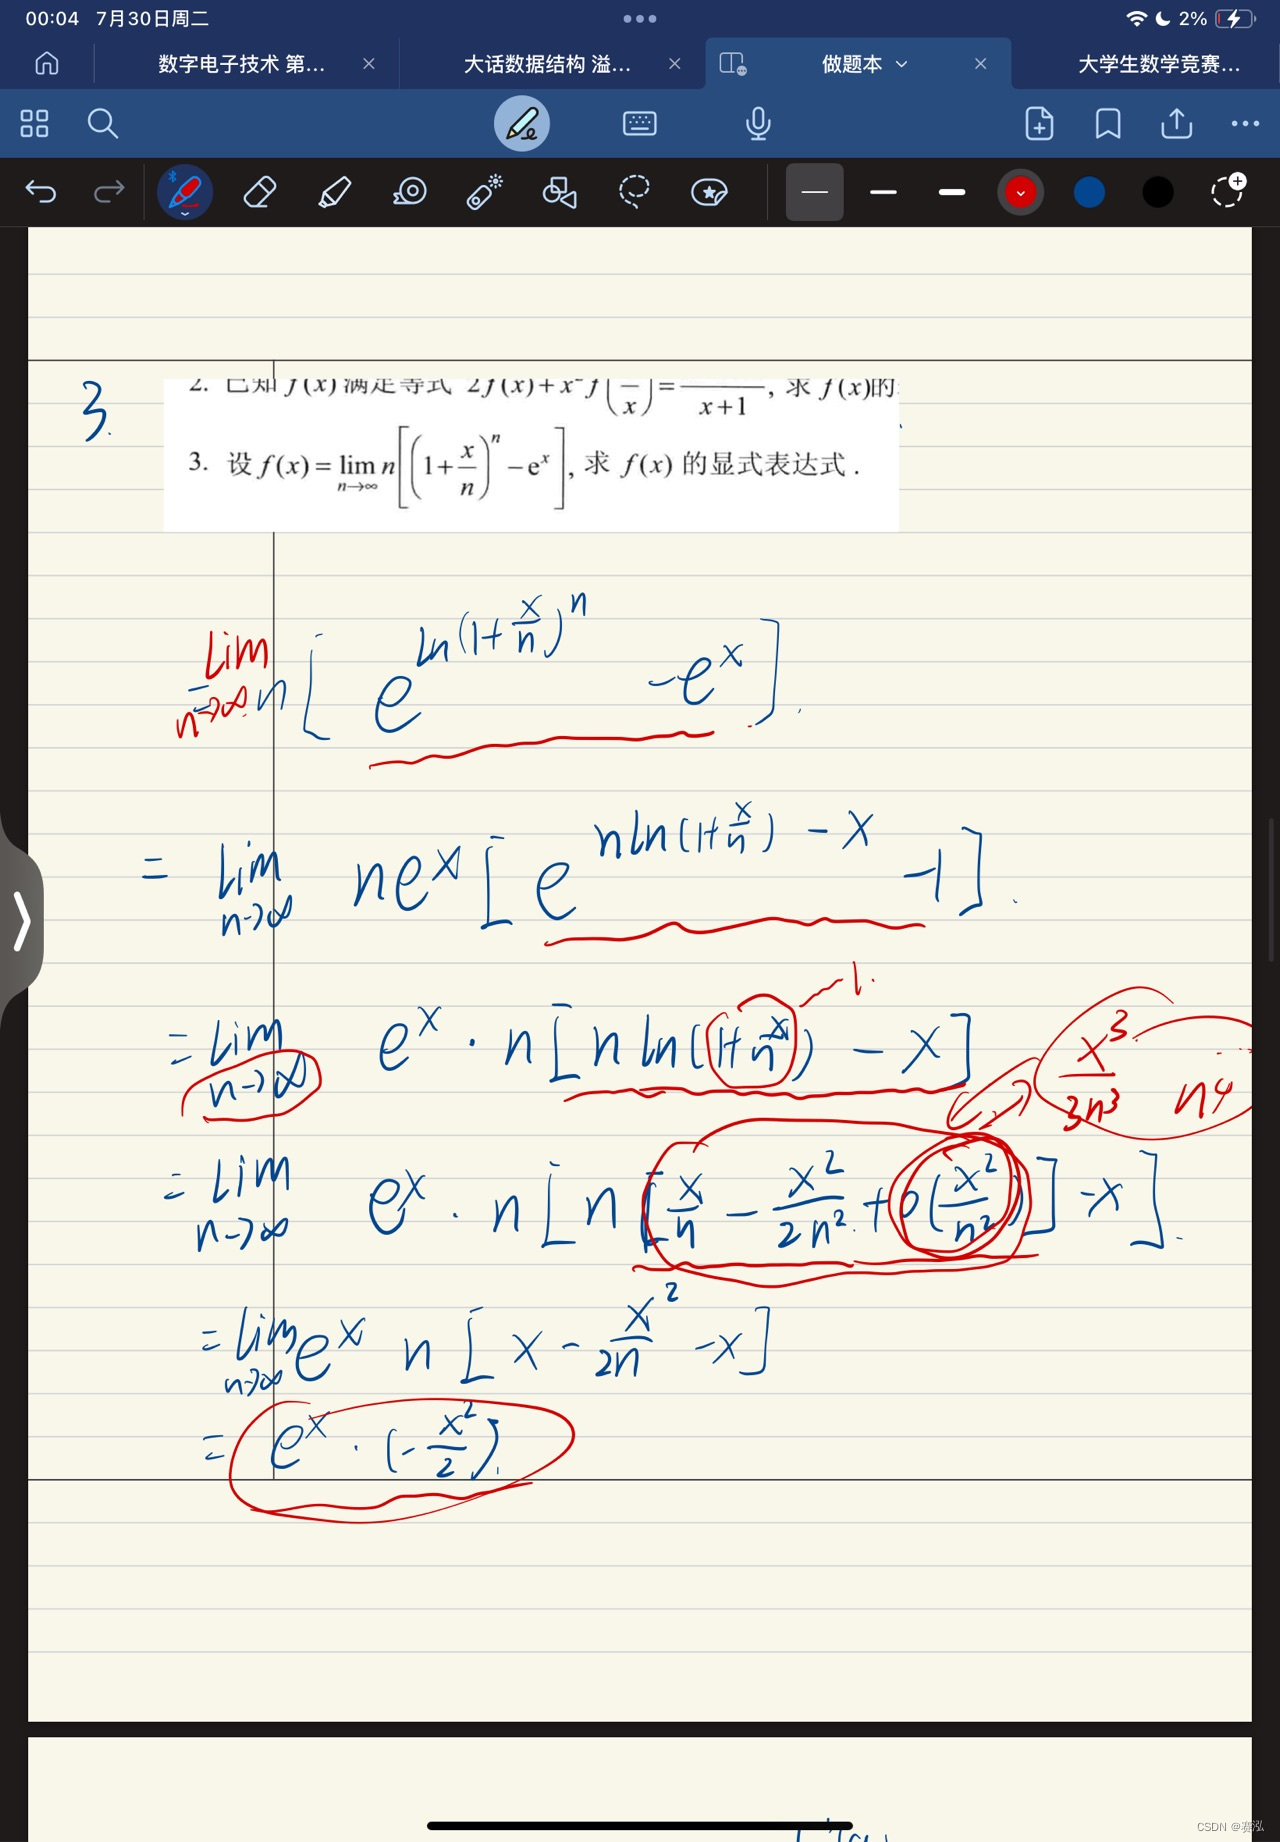 00:04 7月30日周二
2%
数字电子技术 第... × 大话数据结构 溢... × 做题本 × 大学生数学竞赛...
3.
2. 已知 f(x) 满足等式 2f(x)+x² f(/x)=/(x+1), 求 f(x)的
3. 设 f(x)=lim n→∞ n[(1+x/n)^n − e^x], 求 f(x) 的显式表达式.
= lim n→∞ n[e^{ln(1+x/n)^n} − e^x].
= lim n→∞ ne^x[e^{nln(1+x/n) − x} −1].
= lim n→∞ e^x · n[n ln(1+x/n) − x] 1. x³/3n³ n⁴
= lim n→∞ e^x · n[n[x/n − x²/2n² + o(x²/n²)] − x].
= lim n→∞ e^x n[x − x²/2n − x]
= e^x · (−x²/2).
CSDN @赛泓